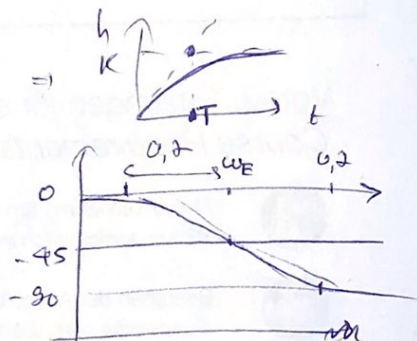 h
K
⇒
T t
0,2 ω_E 0,2
0
-45
90